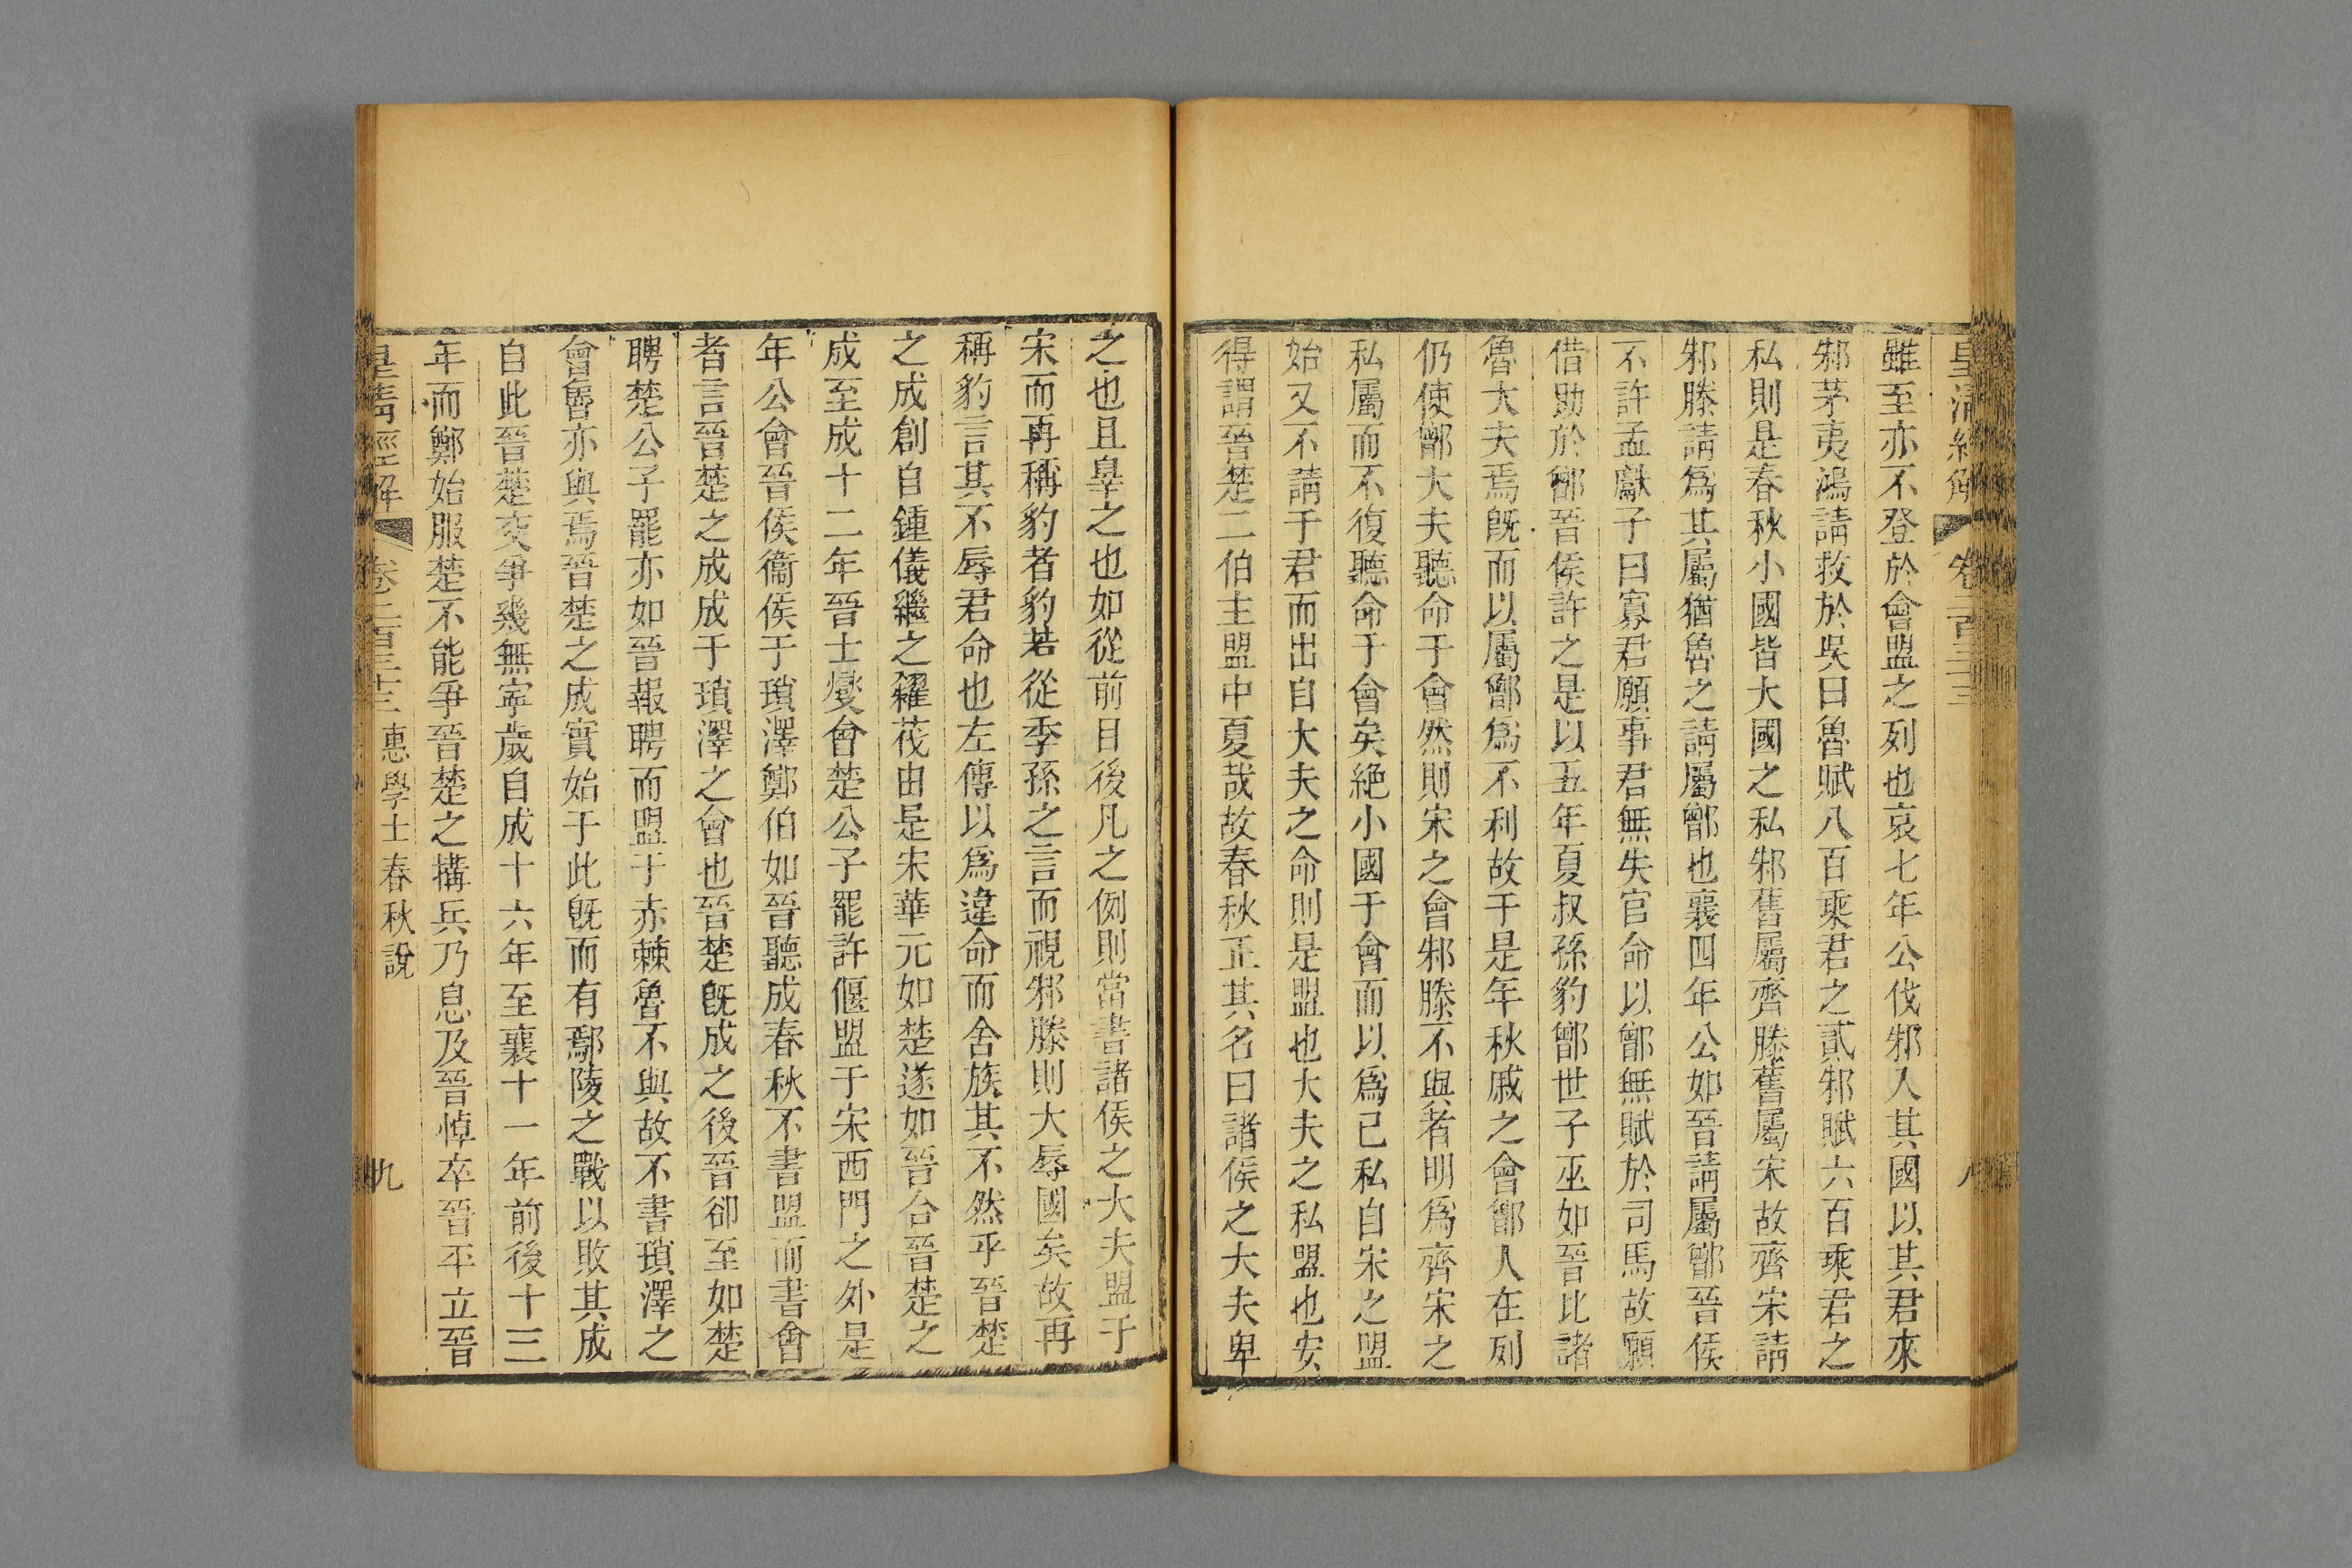 皇清經解 卷二百三十三 八
雖至亦不登於會盟之列也哀七年公伐邾入其國以其君來
邾茅夷鴻請救於吳曰魯賦八百乘君之貳邾賦六百乘君之
私則是春秋小國皆大國之私邾舊屬齊滕舊屬宋故齊宋請
邾滕請爲其屬猶魯之請屬鄫也襄四年公如晉請屬鄫晉侯
不許孟獻子曰寡君願事君無失官命以鄫無賦於司馬故願
借助於鄫晉侯許之是以五年夏叔孫豹鄫世子巫如晉比諸
魯大夫焉旣而以屬鄫爲不利故于是年秋戚之會鄫人在列
仍使鄫大夫聽命于會然則宋之會邾滕不與者明爲齊宋之
私屬而不復聽命于會矣絕小國于會而以爲已私自宋之盟
始又不請于君而出自大夫之命則是盟也大夫之私盟也安
得謂晉楚二伯主盟中夏哉故春秋正其名曰諸侯之大夫卑
之也且辠之也如從前目後凡之例則當書諸侯之大夫盟于
宋而再稱豹者豹若從季孫之言而視邾滕則大辱國矣故再
稱豹言其不辱君命也左傳以爲違命而舍族其不然乎晉楚
之成創自鍾儀繼之糴茷由是宋華元如楚遂如晉合晉楚之
成至成十二年晉士燮會楚公子罷許偃盟于宋西門之外是
年公會晉侯衞侯于瑣澤鄭伯如晉聽成春秋不書盟而書會
者言晉楚之成成于瑣澤之會也晉楚旣成之後晉郤至如楚
聘楚公子罷亦如晉報聘而盟于赤棘魯不與故不書瑣澤之
會魯亦與焉晉楚之成實始于此旣而有鄢陵之戰以敗其成
自此晉楚交爭幾無寧歲自成十六年至襄十一年前後十三
年而鄭始服楚不能爭晉楚之搆兵乃息及晉悼卒晉平立晉
皇清經解 卷二百三十三 惠學士春秋說 九